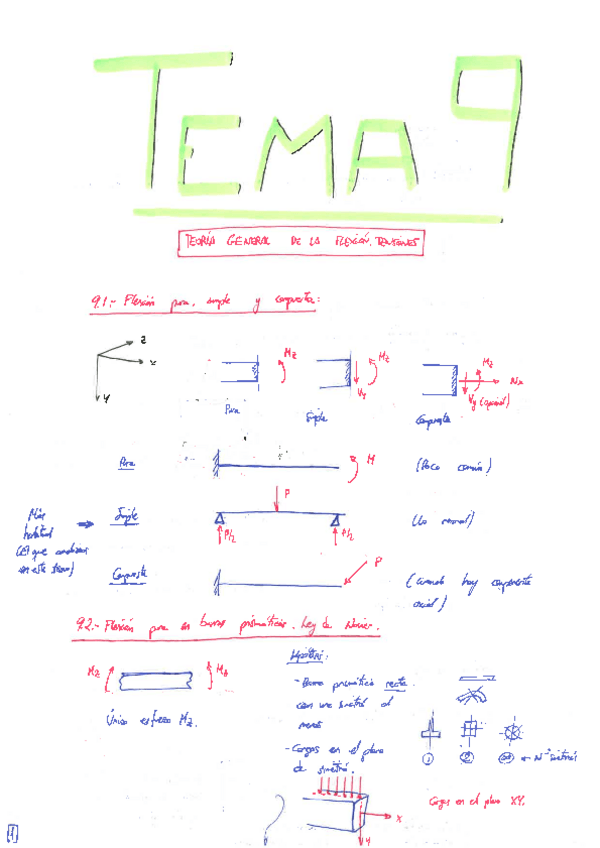 TEMA 9
TEORÍA GENERAL DE LA FLEXIÓN. TENSIONES
9.1.- Flexión pura, simple y compuesta:
z
x
y
Mz
Mz
Mz
Nx
Vy
Vy (opcional)
Pura
Simple
Compuesta
Pura
M
(Poco común)
P
Más habitual
(El que
en este tema)
Simple
P/2
P/2
(Lo normal)
P
Compuesta
(Cuando hay componente axial)
9.2.- Flexión pura en barras prismáticas. Ley de Navier.
Mz
Mz
Único esfuerzo Mz.
Hipótesis:
- Barra prismática recta
con una simetría al
menos
- Cargas en el plano
de simetría.
1
2
∞
← Nº simetrías
Cargas en el plano XY.
x
y
1